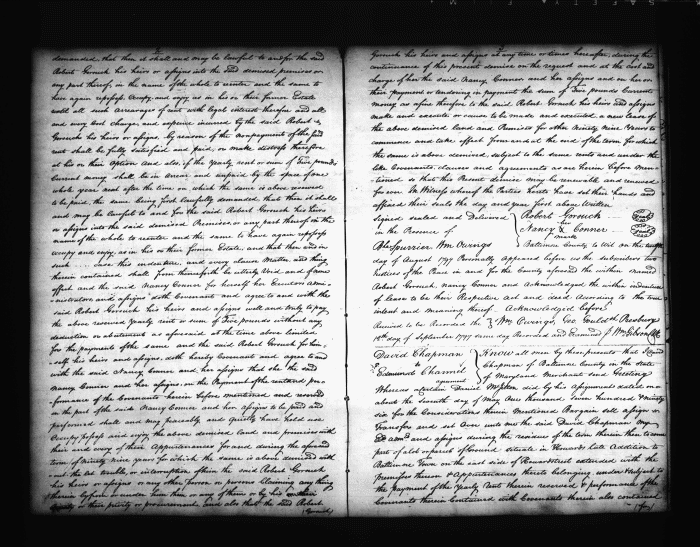 demanded that then it shall and may be lawful to and for the said
Robert Gorsuch his heirs or assigns into the said demised premises or
any part thereof in the name of the whole to reenter and the same to
have again repossess Occupy and enjoy as in his or their former Estate
until all such arrearages of rent with legal interest therefor and all
and every Cost charge and expence incurred by the said Robert
Gorsuch his heirs or assigns by reason of the nonpayment of the said
rent shall be fully satisfied and paid, or make distress therefore
at his or their Option and also if the Yearly rent or sum of Five pounds
Current money shall be in arrear and unpaid by the space of one
whole year next after the time on which the same is above reserved
to be paid the same being first lawfully demanded, that then it shall
and may be lawful to and for the said Robert Gorsuch his heirs
or assigns into the said demised Premises or any part thereof in the
name of the whole to reenter and the same to have again repossess
occupy and enjoy as in his or their former Estate, and that then and in
such case this indenture, and every clause Matter and thing
therein contained shall from thenceforth be utterly Void and of none
effect and the said Nancy Conner for herself her Executors admi-
nistrators and assigns doth Covenant and agree to and with the
said Robert Gorsuch his heirs and assigns well and truly to pay
the above reserved Yearly rent or sum of Five pounds without any
deduction or abatement as aforesaid at the time above limited
for the payments of the same and the said Robert Gorsuch for him-
self his heirs and assigns doth hereby Covenant and agree to and
with the said Nancy Conner and her assigns that she the said
Nancy Conner and her assigns on the Payment of the rent and per-
formance of the Covenants herein before mentioned and reserved
on the part of the said Nancy Conner and her assigns to be paid and
performed shall and may peaceably and quietly have hold use
Occupy possess and enjoy the above demised land and premises with
their and every of their Appurtenances for and during the aforesaid
term of ninety nine years for which the same is above demised with-
out the let trouble or interruption of him the said Robert Gorsuch
his heirs or assigns or any other person or persons Claiming any thing
therein by from or under him them or any of them or by his or their
or their privity or procurement and also that the said Robert
(Gorsuch
Gorsuch his heirs and assigns at any time or times hereafter during the
continuance of this present demise on the request and at the cost and
charge of her the said Nancy Conner and her assigns and on her or
their payment or tendering in payment the sum of Five pounds Current
money as a fine therefor to the said Robert Gorsuch his heirs and assigns
make and execute or cause to be made and executed a new lease of
the above demised land and Premises for other Ninety Nine Years to
commence and take effect from and at the end of the term for which
the same is above demised, subject to the same rents and under the
like Covenants clauses and agreements as are herein before Men-
tioned so that this Present demise may be renewable and renewed
for ever In Witness whereof the Parties hereto have set their hands and
affixed their seals the day and year first above Written
Signed sealed and Delivered
in the Presence of
Wm Owings
Robert Gorsuch (Seal)
her
Nancy X Conner (Seal)
mark
Baltimore County to wit on the
day of August 1797 Personally appeared before us the subscribers two
Justices of the Peace in and for the County aforesaid the within named
Robert Gorsuch, Nancy Conner and Acknowledged the within indenture
of lease to be their Respective act and deed According to the true
intent and meaning thereof. Acknowledged before
Received to be Recorded the Wm Owings, Geo Gould Presbury
18th day of September 1797 same day Recorded and Examined Wm Gibson Clk
David Chapman
to
Edmund Channel
assignment
Know all men by these presents that I David
Chapman of Baltimore County in the state
of Maryland Merchant send Greeting
Whereas a certain Daniel did by his assignment dated on or
about the seventh day of May One thousand seven hundred & ninety
six for the Consideration therein Mentioned Bargain sell assign
Transfer and set Over unto me the said David Chapman my
and assigns during the residue of the term therein then to come
part of a lot of Ground situate in Howards late Addition to
Baltimore Town on the east side of Howard street extended with the
premises thereon & Appurtenances thereto belonging, under & subject to
the Payment of the Yearly rent therein reserved & performance of the
Covenants therein Contained with Covenants therein also contained
(for)